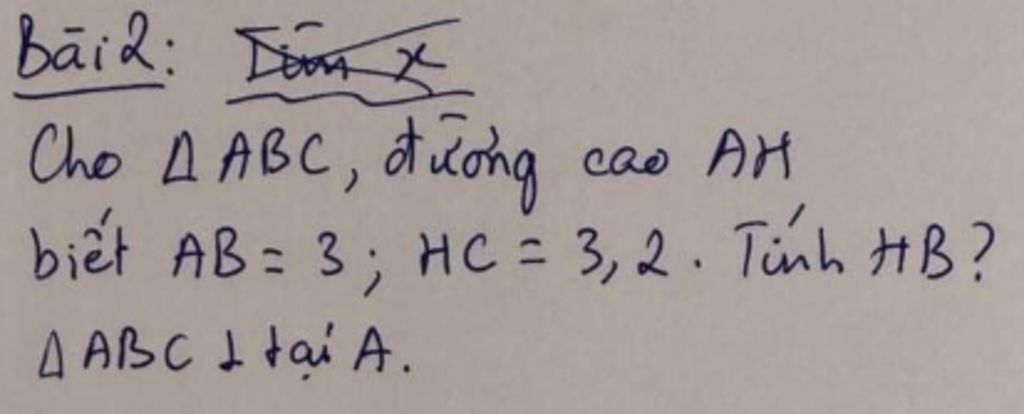 Bài 2: Tìm x
Cho Δ ABC, đường cao AH
biết AB = 3; HC = 3,2. Tính HB?
Δ ABC ⊥ tại A.